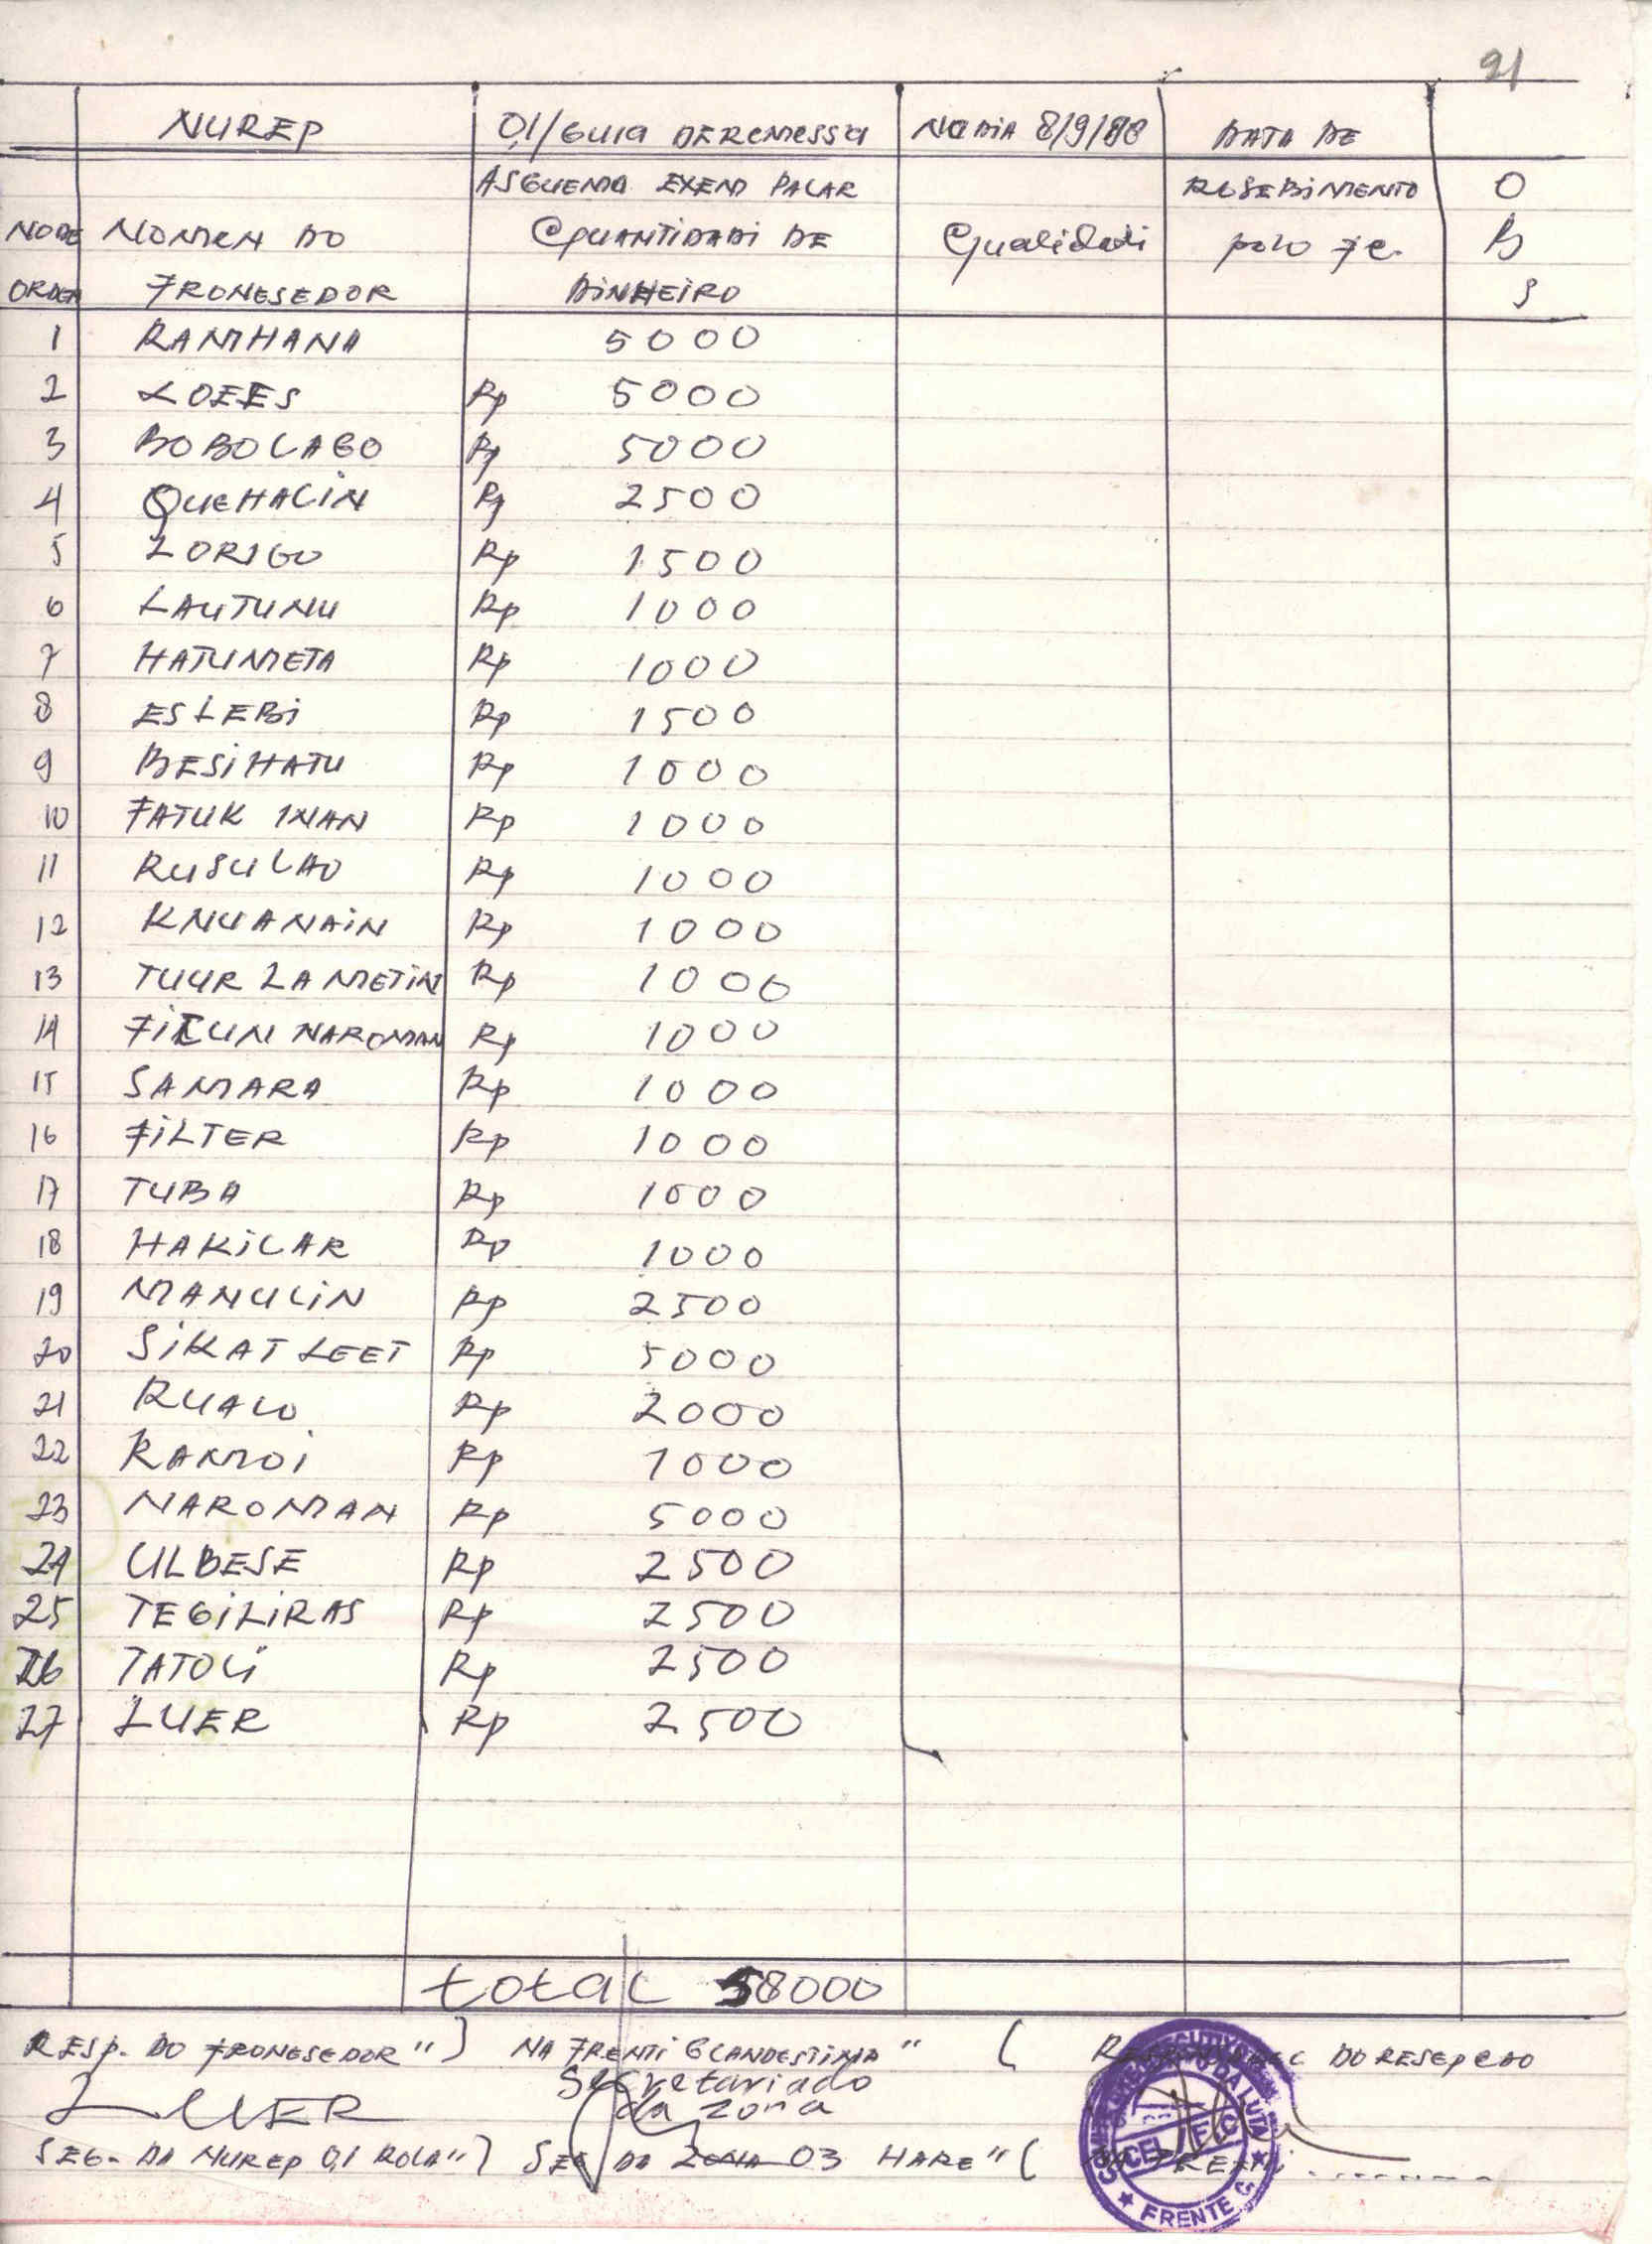 21
NUREP 0,1/GUIA DEREMESSA NO DIA 8/9/88 DATA DE
ASGUEMO EXEM PALAR RESEBIMENTO O
NODE NOMEN DO CQUANTIDADI DE Cqualidadi polo FC. B
ORDEM FRONESEDOR DINHEIRO S
1 RAMHANA 5000
2 LOEES Rp 5000
3 BOBOLAGO Rp 5000
4 QUEHALIN Rp 2500
5 LORIGO Rp 1500
6 LAUTUNU Rp 1000
7 HATUMETA Rp 1000
8 ESLEBI Rp 1500
9 BESIHATU Rp 1000
10 FATUK INAN Rp 1000
11 RUSULAO Rp 1000
12 KNUANAIN Rp 1000
13 TUUR LAMETIN Rp 1000
14 FILUN NAROMAN Rp 1000
15 SAMARA Rp 1000
16 FILTER Rp 1000
17 TUBA Rp 1000
18 HAKILAR Rp 1000
19 MANULIN Rp 2500
20 SIKAT LEET Rp 5000
21 RUALO Rp 2000
22 RAMOI Rp 1000
23 NAROMAN Rp 5000
24 ULBESE Rp 2500
25 TEGILIRAS Rp 2500
26 TATOLI Rp 2500
27 LUER Rp 2500
total 58000
RESP. DO FRONESEDOR") NA FRENTI CLANDESTINA" ( DO RESEPCAO
LUER Secretariado
da zona
SEG. DA NUREP 0,1 ROLA") SEG DA ZONA 03 HARE" (
DA LUTA
CEL / FC
FRENTE C